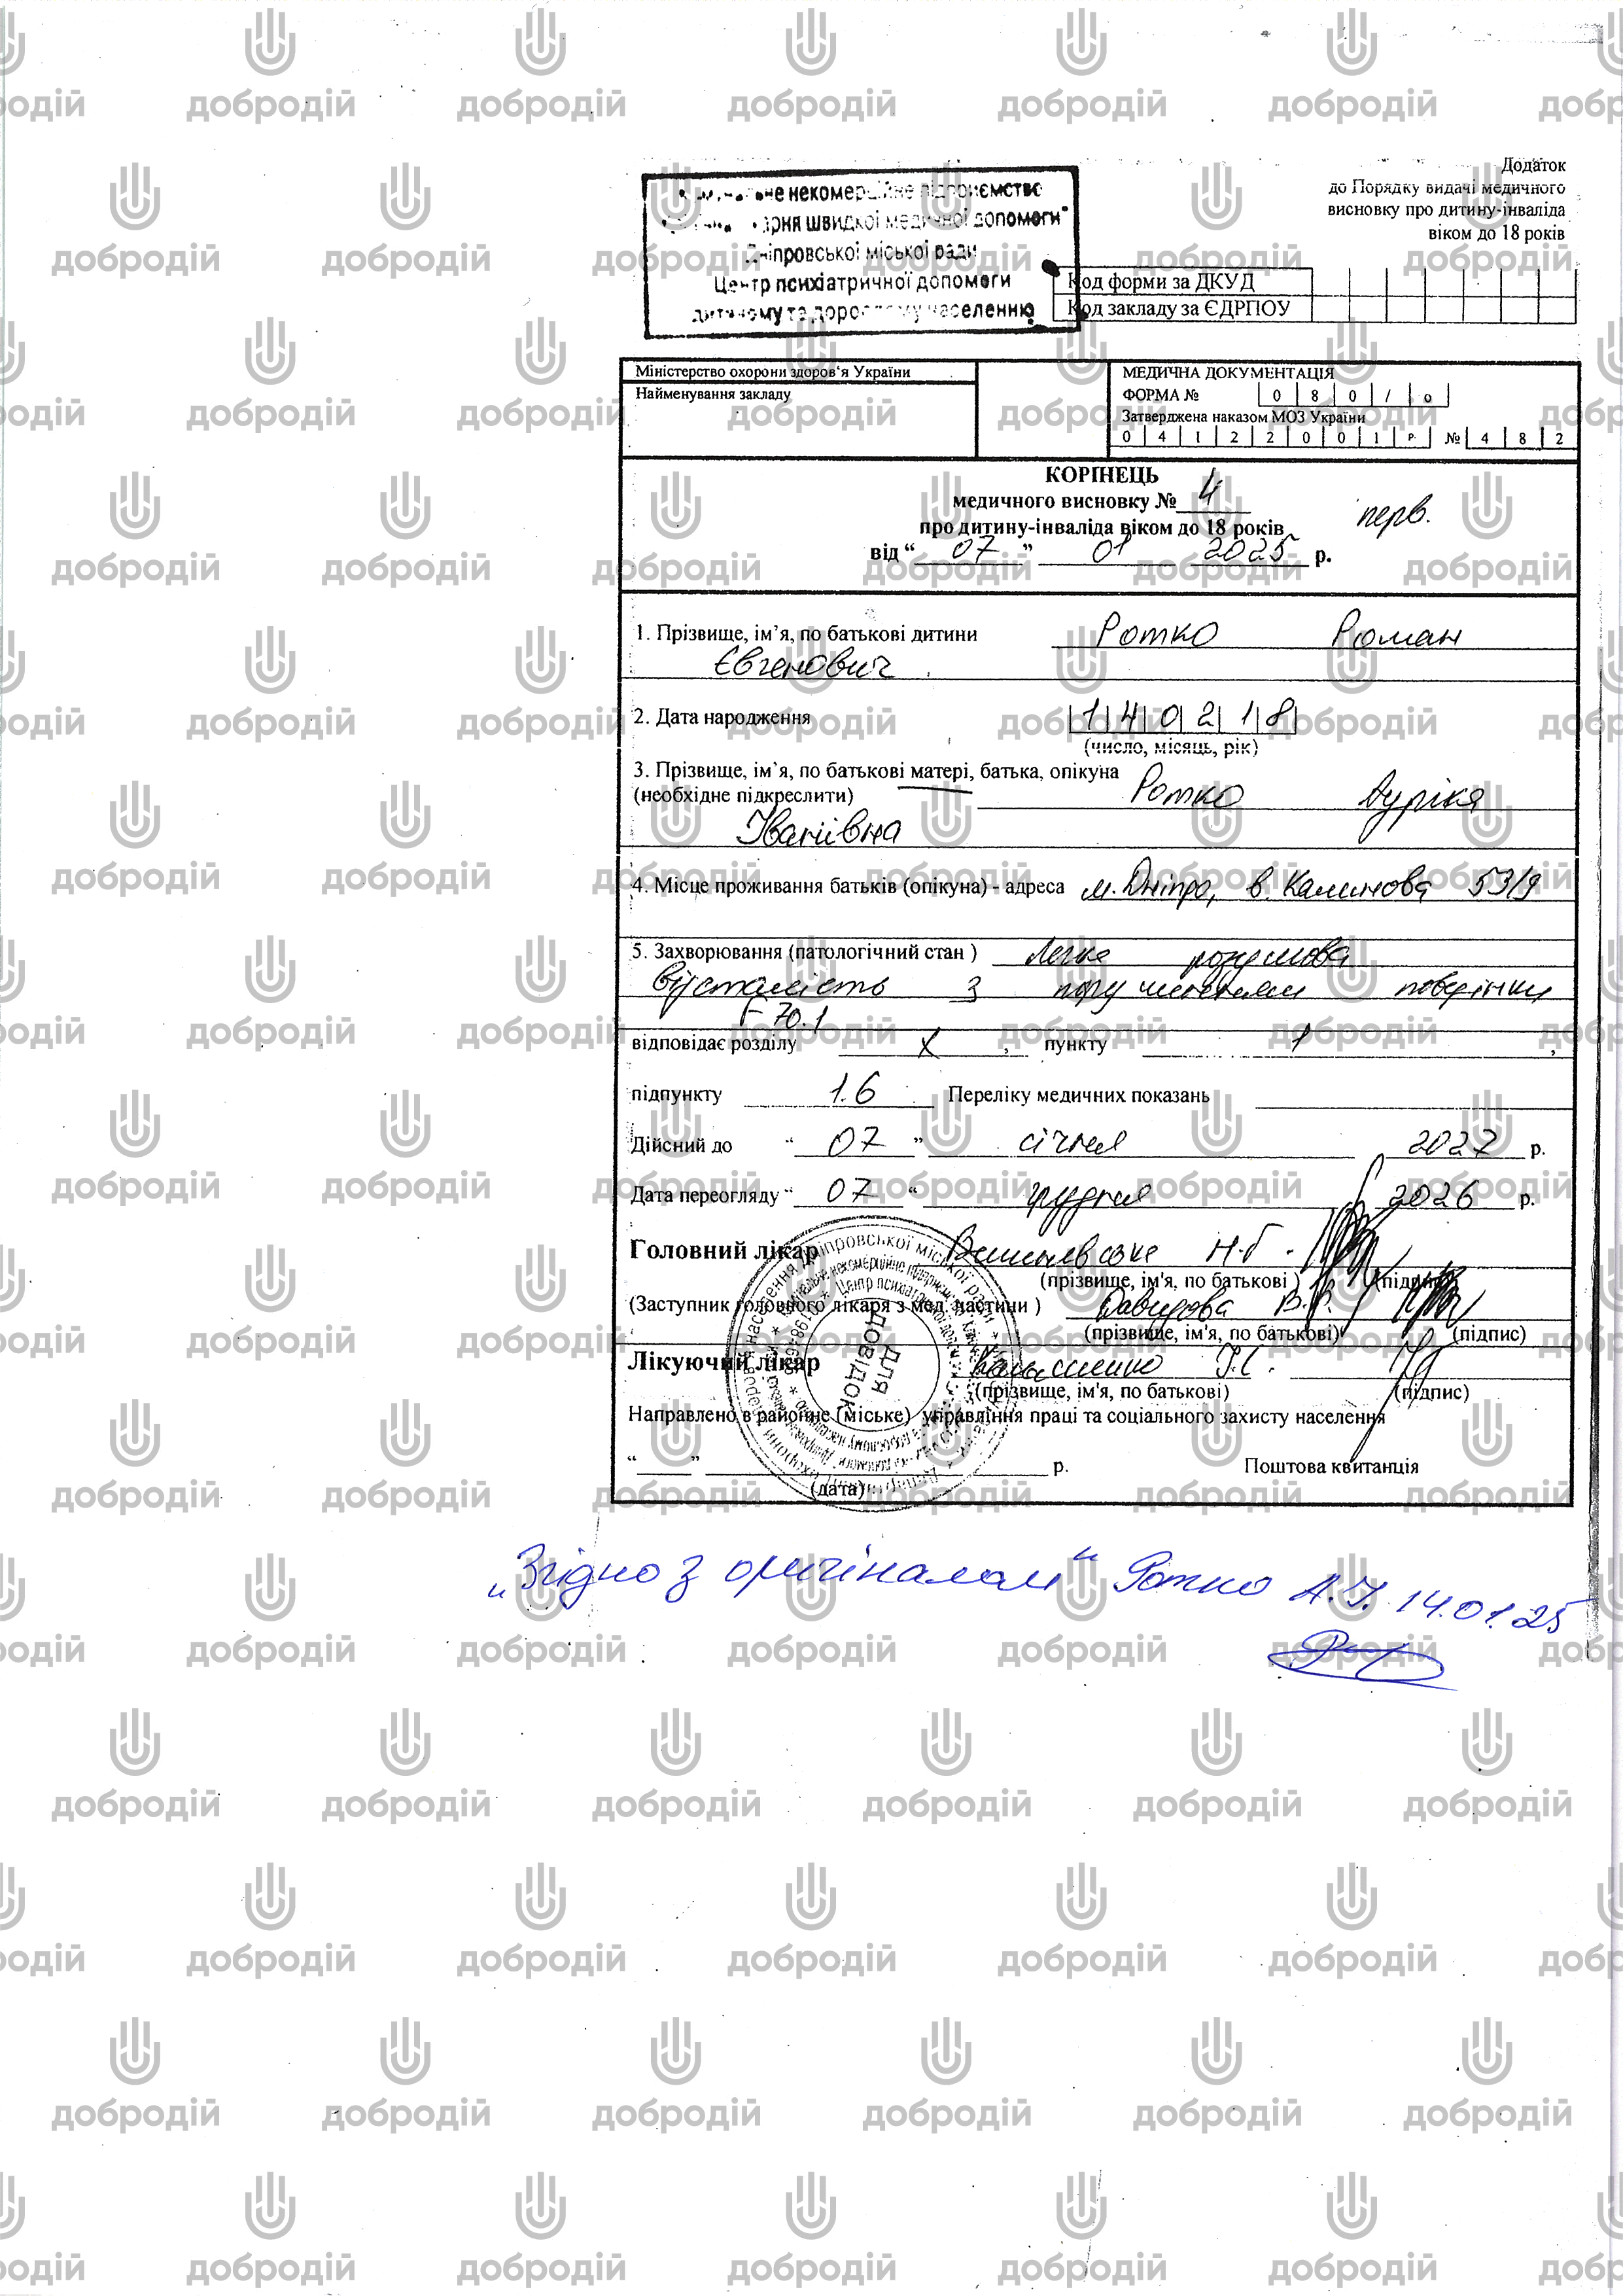 Додаток
до Порядку видачі медичного
висновку про дитину-інваліда
віком до 18 років
некомерційне підприємство
швидкої медичної допомоги"
Дніпровської міської ради
Центр психіатричної допомоги
дитячому та дорослому населенню
Код форми за ДКУД
Код закладу за ЄДРПОУ
Міністерство охорони здоров'я України
Найменування закладу
МЕДИЧНА ДОКУМЕНТАЦІЯ
ФОРМА № 0 8 0 / о
Затверджена наказом МОЗ України
0 4 1 2 2 0 0 1 р. № 4 8 2
КОРІНЕЦЬ
медичного висновку № 4
перв.
про дитину-інваліда віком до 18 років
від “ 07 ” 01 2025 р.
1. Прізвище, ім’я, по батькові дитини Ротко Роман
Євгенович
2. Дата народження 1 4 0 2 1 8
(число, місяць, рік)
3. Прізвище, ім’я, по батькові матері, батька, опікуна
(необхідне підкреслити) Ротко
Іванівна
4. Місце проживання батьків (опікуна) - адреса м. Дніпро, в. Калинова 53/9
5. Захворювання (патологічний стан ) Легка розумова
відсталість з порушенням поведінки
F 70.1
відповідає розділу X , пункту 1 ,
підпункту 1.6 Переліку медичних показань
Дійсний до “ 07 ” січня 2027 р.
Дата переогляду “ 07 “ грудня 2026 р.
Головний лікар Н.Г.
(прізвище, ім'я, по батькові ) (підпис)
(Заступник головного лікаря з мед. частини ) Давидова В.
(прізвище, ім'я, по батькові) (підпис)
Лікуючий лікар
(прізвище, ім'я, по батькові) (підпис)
Направлено в районне (міське) управління праці та соціального захисту населення
“ ” р. Поштова квитанція
(дата)
ДЛЯ
ДОВІДОК
„Згідно з оригіналом“ Ротко А.І. 14.01.25
добродій